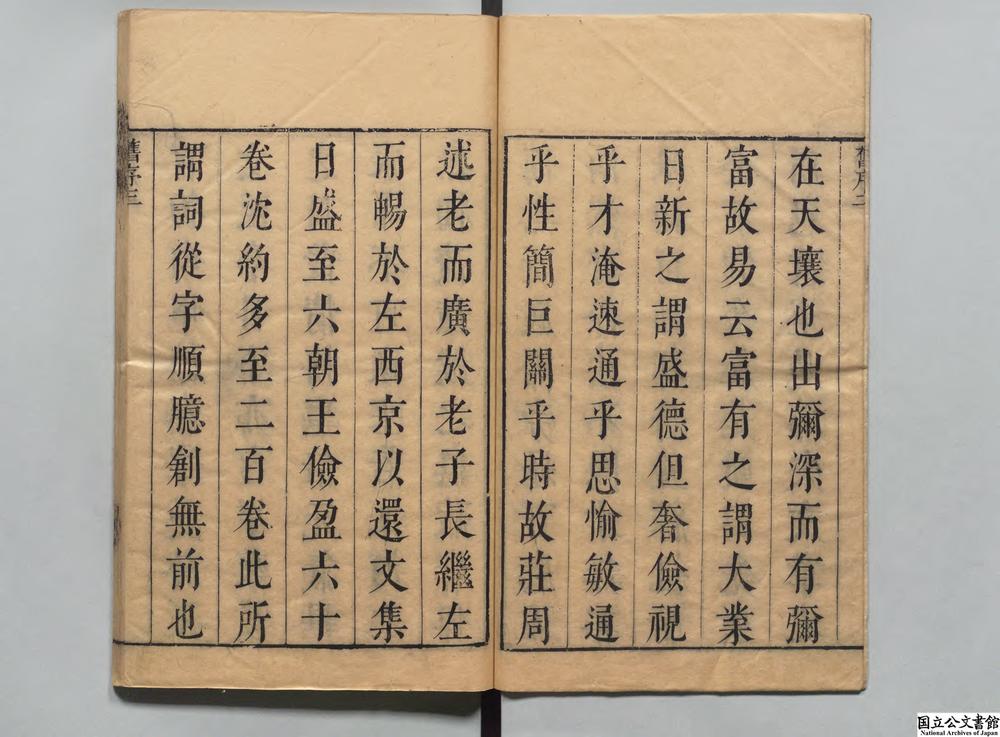 在天壤也出彌深而有彌
富故易云富有之謂大業
日新之謂盛德但奢儉視
乎才淹速通乎思愉敏通
乎性簡巨關乎時故莊周
述老而廣於老子長繼左
而暢於左西京以還文集
日盛至六朝王儉盈六十
卷沈約多至二百卷此所
謂詞從字順臆創無前也
舊序三
国立公文書館
National Archives of Japan